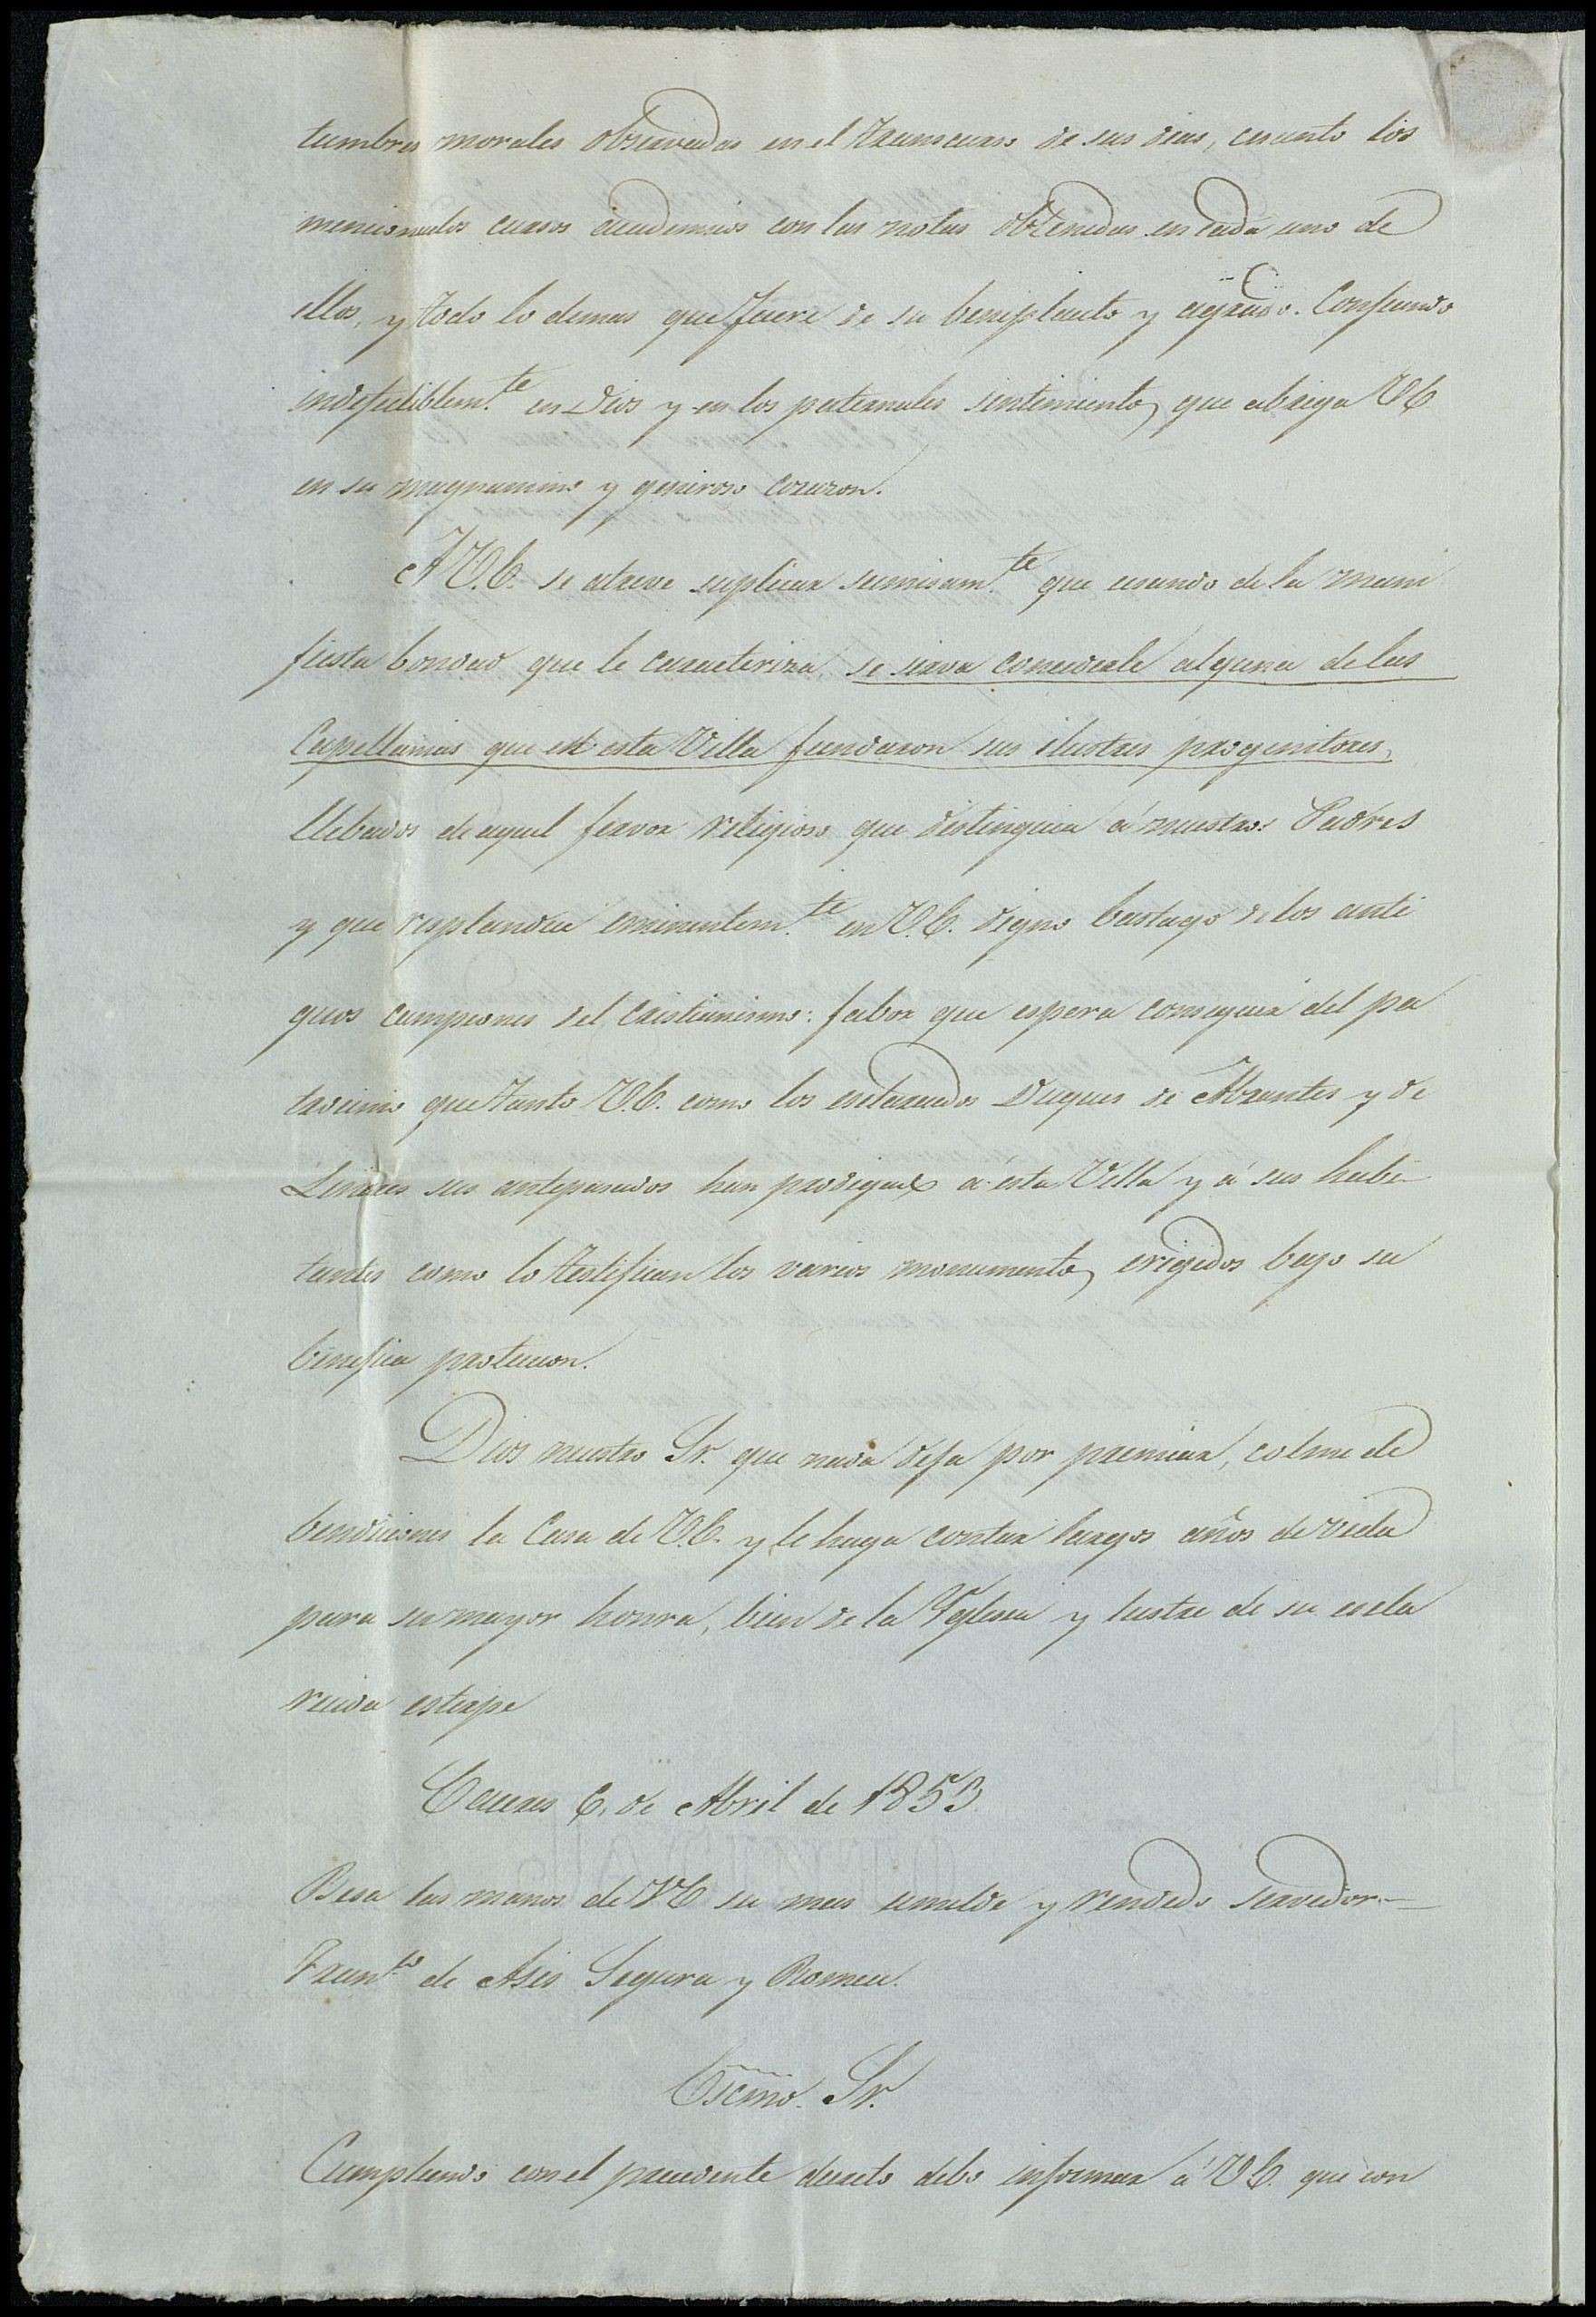 tumbres morales observadas en el trascurso de sus dias, cuanto los
mencionados cursos academicos con las notas obtenidas en cada uno de
ellos, y todo lo demas que fuere de su beneplacito y agrado. Confiando
indefectiblem.te en Dios y en los paternales sentimientos que abriga V.E.
en su magnanimo y generoso corazon.
A V.E. se atreve suplicar sumisam.te que usando de la mani
fiesta bondad que le caracteriza, se sirva concederle alguna de las
Capellanias que en esta Villa fundaron sus ilustres progenitores,
llebados de aquel fervor religioso que distinguia á nuestros Padres
y que resplandece eminentem.te en V.E. digno bastago de los anti
guos campeones del cristianismo: fabor que espera conseguir del pa
trocinio que tanto V.E. como los Duques de Abrantes y de
Linares sus antepasados han prodigado á esta Villa y á sus habi-
tantes como lo testifican los varios monumentos erigidos bajo su
benefica proteccion.
Dios nuestro Sr. que nada deja por premiar, colme de
bendiciones la Casa de V.E. y le haga contar largos años de vida
para su mayor honra, bien de la Yglesia y lustre de su escla
recida estirpe
6, de Abril de 1853
Besa las manos de V.E. su mas umilde y rendido servidor.—
Fran.co de Asis Segura y Romeu.
Escmo. Sr.
Cumpliendo con el precedente decreto debo informar á V.E. que con